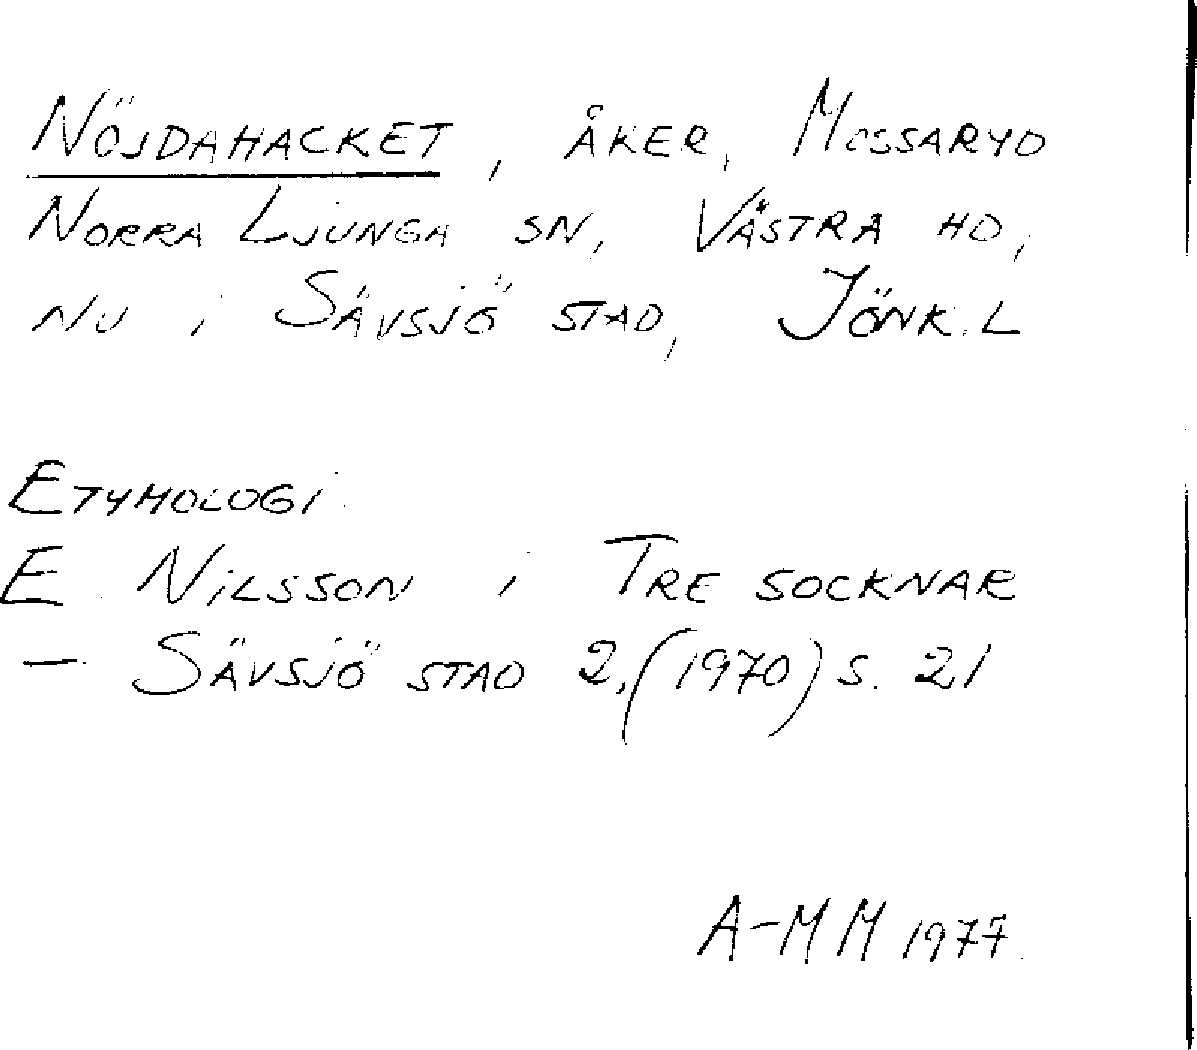 NÖJDAHACKET, ÅKER, MOSSARYD
NORRA LJUNGA SN, VÄSTRA HD,
NU i SÄVSJÖ STAD, JÖNK. L
ETYMOLOGI
E. NILSSON i TRE SOCKNAR
– SÄVSJÖ STAD 2, (1970) S. 21
A-MM 1977.